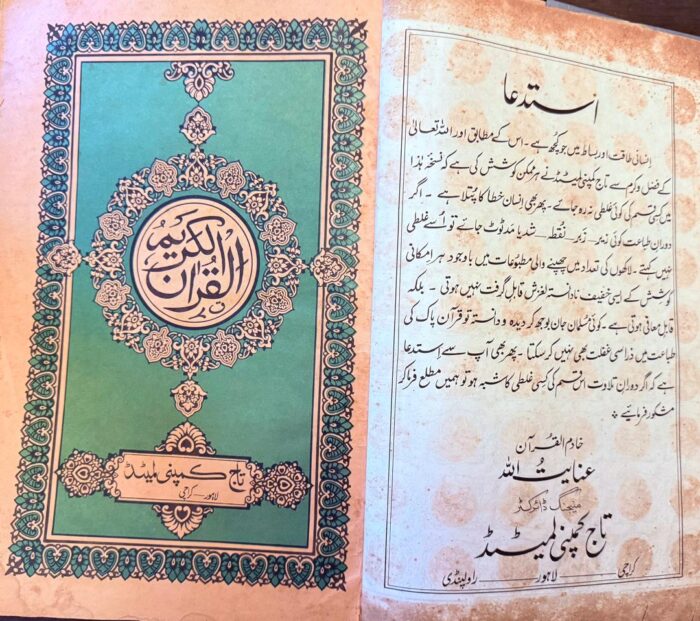 القرآن الكريم
تاج کمپنی لمیٹڈ
لاہور — کراچی
استدعا
انسانی طاقت اور بساط میں جو کچھ ہے۔ اس کے مطابق اور اللہ تعالیٰ
کے فضل و کرم سے تاج کمپنی لمیٹڈ نے ہر ممکن کوشش کی ہے کہ نسخہ ہٰذا
میں کسی قسم کی کوئی غلطی نہ رہ جائے۔ پھر بھی انسان خطا کا پتلا ہے۔ اگر
دوران طباعت کوئی زیر۔ زبر۔ نقطہ۔ شد یا مد ٹوٹ جائے تو اُسے غلطی
نہیں کہتے۔ لاکھوں کی تعداد میں چھپنے والی مطبوعات میں باوجود ہر امکانی
کوشش کے ایسی خفیف نادانستہ لغزش قابل گرفت نہیں ہوتی۔ بلکہ
قابل معافی ہوتی ہے۔ کوئی مسلمان جان بوجھ کر دیدہ و دانستہ تو قرآن پاک کی
طباعت میں ذرا سی غفلت بھی نہیں کر سکتا۔ پھر بھی آپ سے استدعا
ہے کہ اگر دوران تلاوت اس قسم کی کسی غلطی کا شبہ ہو تو ہمیں مطلع فرما کر
مشکور فرمائیے
خادم القرآن
عنایت اللہ
مینجنگ ڈائرکٹر
تاج کمپنی لمیٹڈ
کراچی — لاہور — راولپنڈی